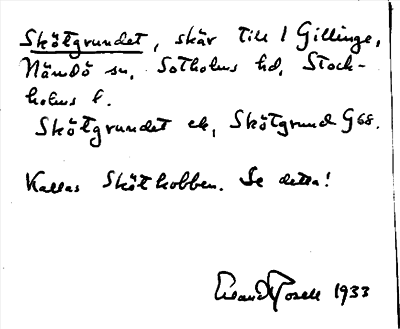 Skötgrundet, skär till 1 Gillinge,
Nämdö sn, Sotholms hd, Stock-
holms l.
Skötgrundet ek, Skötgrund G 68.
Kallas Skötkobben. Se detta!
1933